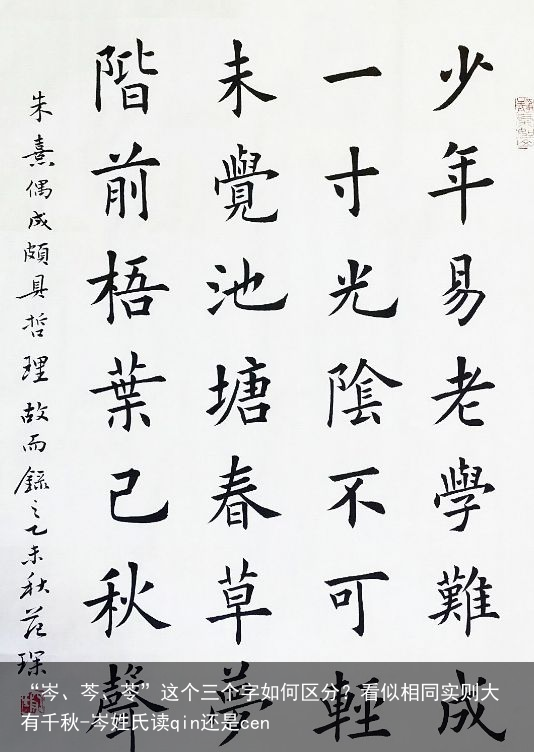 少年易老學難成
一寸光陰不可輕
未覺池塘春草夢
階前梧葉已秋聲
朱熹偶成頗具哲理故而錄之乙未秋范琛
“岑、芩、苓”这个三个字如何区分？看似相同实则大
有千秋-岑姓氏读qin还是cen